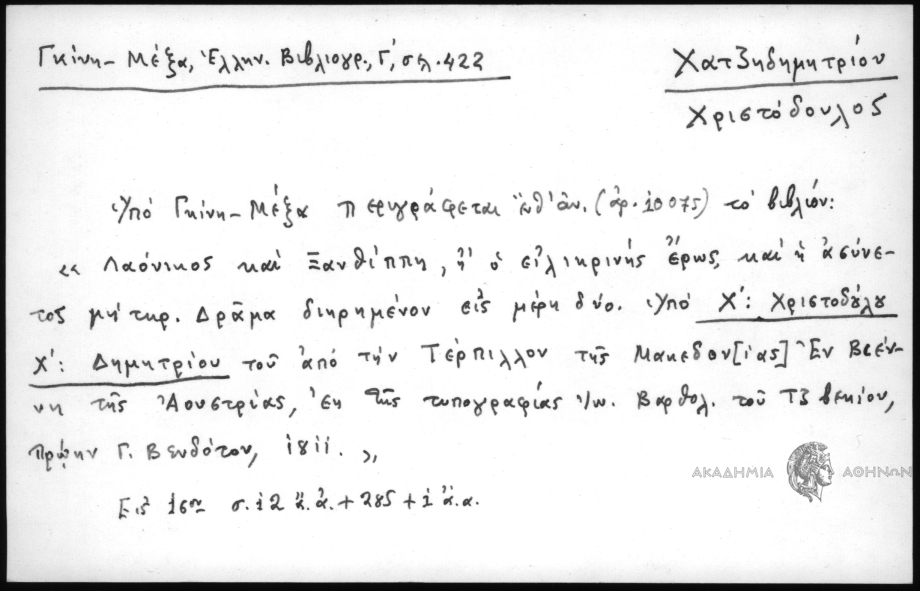 Γκίνη-Μέξα, Ἑλλην. Βιβλιογρ., Γ΄, σελ. 422
Χατζηδημητρίου
Χριστόδουλος
Ὑπό Γκίνη-Μέξα περιγράφεται ἐνθ' ἀν. (ἀρ. 10075) τό βιβλίον:
«Λαόνικος καὶ Ξανθίππη, ἤ ὁ εἰλικρινής ἔρως, καὶ ἡ ἀσύνε-
τος μήτηρ. Δρᾶμα διηρημένον εἰς μέρη δύο. Ὑπό Χ΄: Χριστοδούλου
Χ΄: Δημητρίου τοῦ ἀπό τήν Τέρπιλλον τῆς Μακεδον[ίας] Ἐν Βιέν-
νη τῆς Ἀουστρίας, Ἐκ τῆς τυπογραφίας Ἰω. Βαρθολ. τοῦ Τζβεκίου,
πρῴην Γ. Βενδότου, 1811.»
Εἰς 16ον σ. 12 ἄ.ἀ. + 285 + 1 ἄ.ἀ.
ΑΚΑΔΗΜΙΑ ΑΘΗΝΩΝ